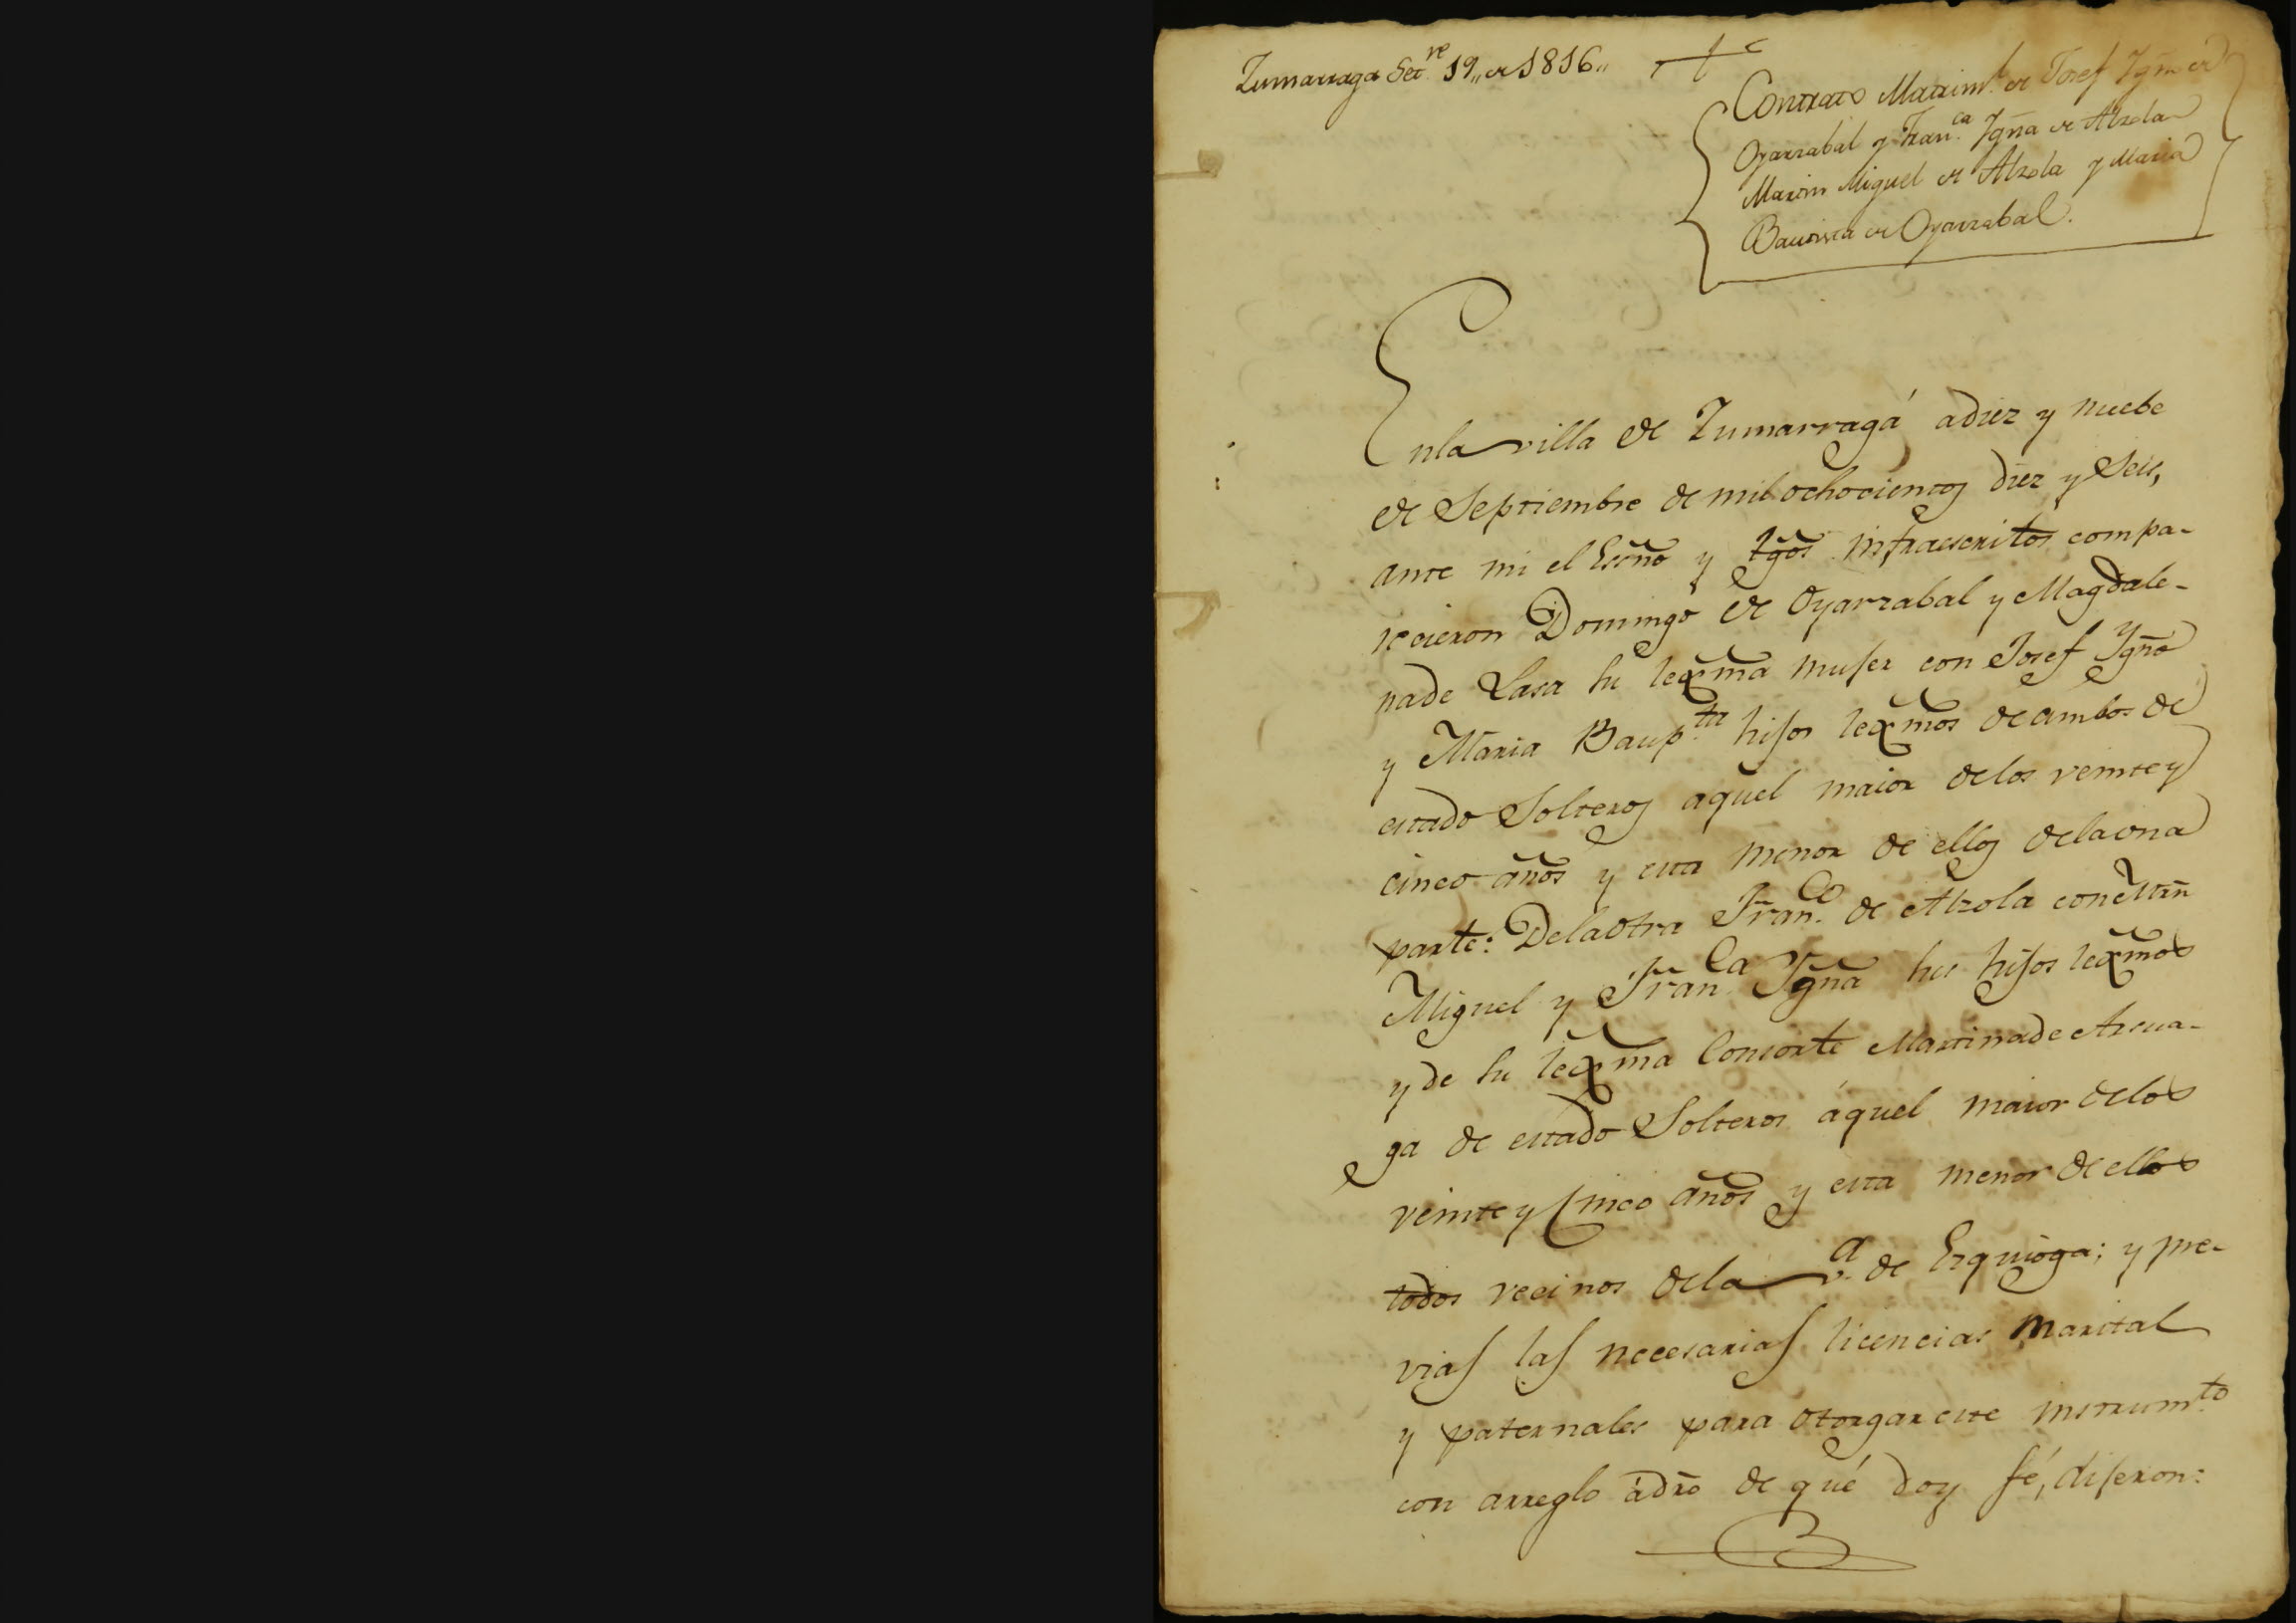 Zumarraga Set.re 19,, de 1816,,
Contrato Matrim.l de Josef Ygn.o de
Oyarzabal y Fran.ca Ygña de Alzola
Martin Miguel de Alzola y Maria
Bautista de Oyarzabal.
Enla villa de Zumarragá adiez y nuebe
de Septiembre de mil ochocientos diez y Seis,
ante mi el Escño y tgos infraescritos compa-
recieron Domingo de Oyarzabal y Magdale-
nade Lasa su lexma muger con Josef Ygño
y Maria Baup.ta hijos lexmos de ambos de
estado Solteros aquel maior delos veinte y
cinco años y esta menor de ellos dela una
parte: Dela Otra Fran.co de Alzola con Mrn
Miguel y Fran.ca Ygña sus hijos lexmos
y de su lexma Consorte Martina de Azcua-
ga de estado Solteros áquel maior delos
veinte y Cinco años y esta menor de ellos
todos vecinos dela v.a de Ezquioga; y pre-
vias las necesarias licencias marital
y paternales para otorgar este instrum.to
con arreglo ádro de qué doy fé, dijeron: